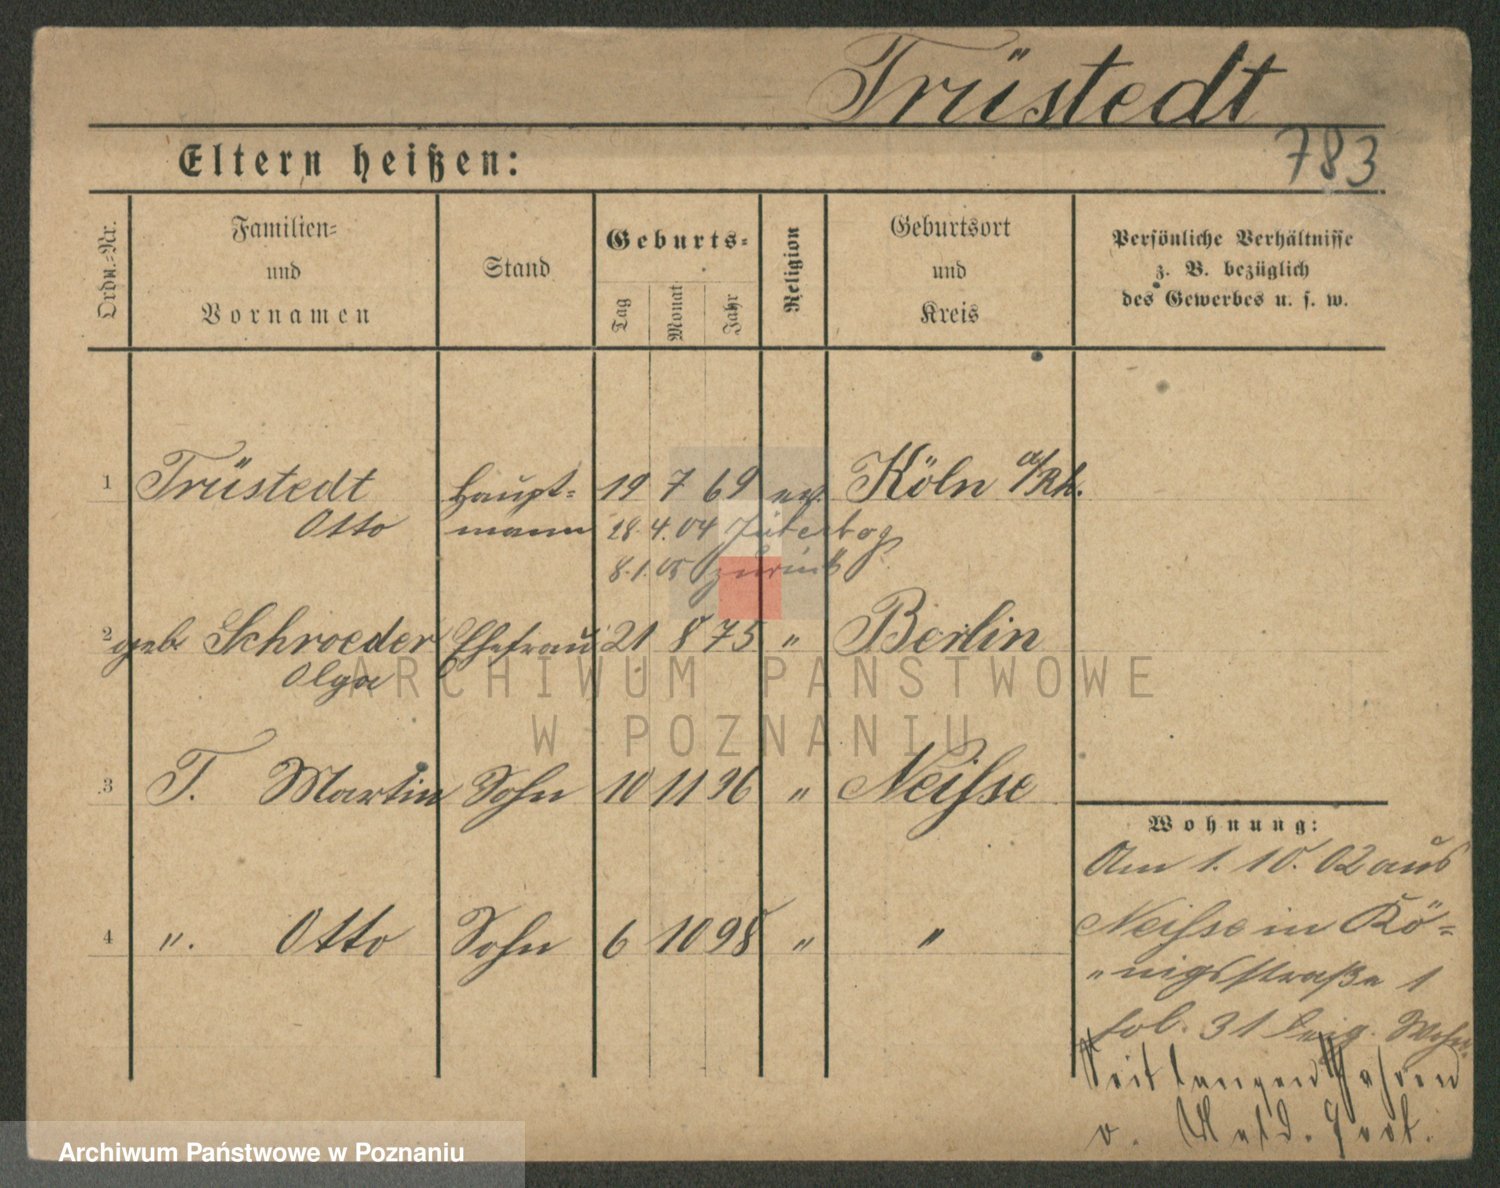 Trüstedt
783
Eltern heißen:
Ordn.-Nr.
Familien-
und
Vornamen
Stand
Geburts-
Tag
Monat
Jahr
Religion
Geburtsort
und
Kreis
Persönliche Verhältnisse
z. B. bezüglich
des Gewerbes u. s. w.
1 Trüstedt Haupt- 19 7 69 ev. Köln a/Rh.
Otto mann 28.4.04 Jüterbog
8.1.05 zurück
2 geb. Schroeder Ehefrau 21 8 75 " Berlin
Olga
3 T. Martin Sohn 10 11 96 " Neisse
4 ". Otto Sohn 6 10 98 " "
Wohnung:
Am 1. 10. 02 aus
Neisse in Kö-
"nigsstraße 1
fol. 31 eig. Wohn.
Seit langen Jahren
v.
ARCHIWUM PAŃSTWOWE
W POZNANIU
Archiwum Państwowe w Poznaniu